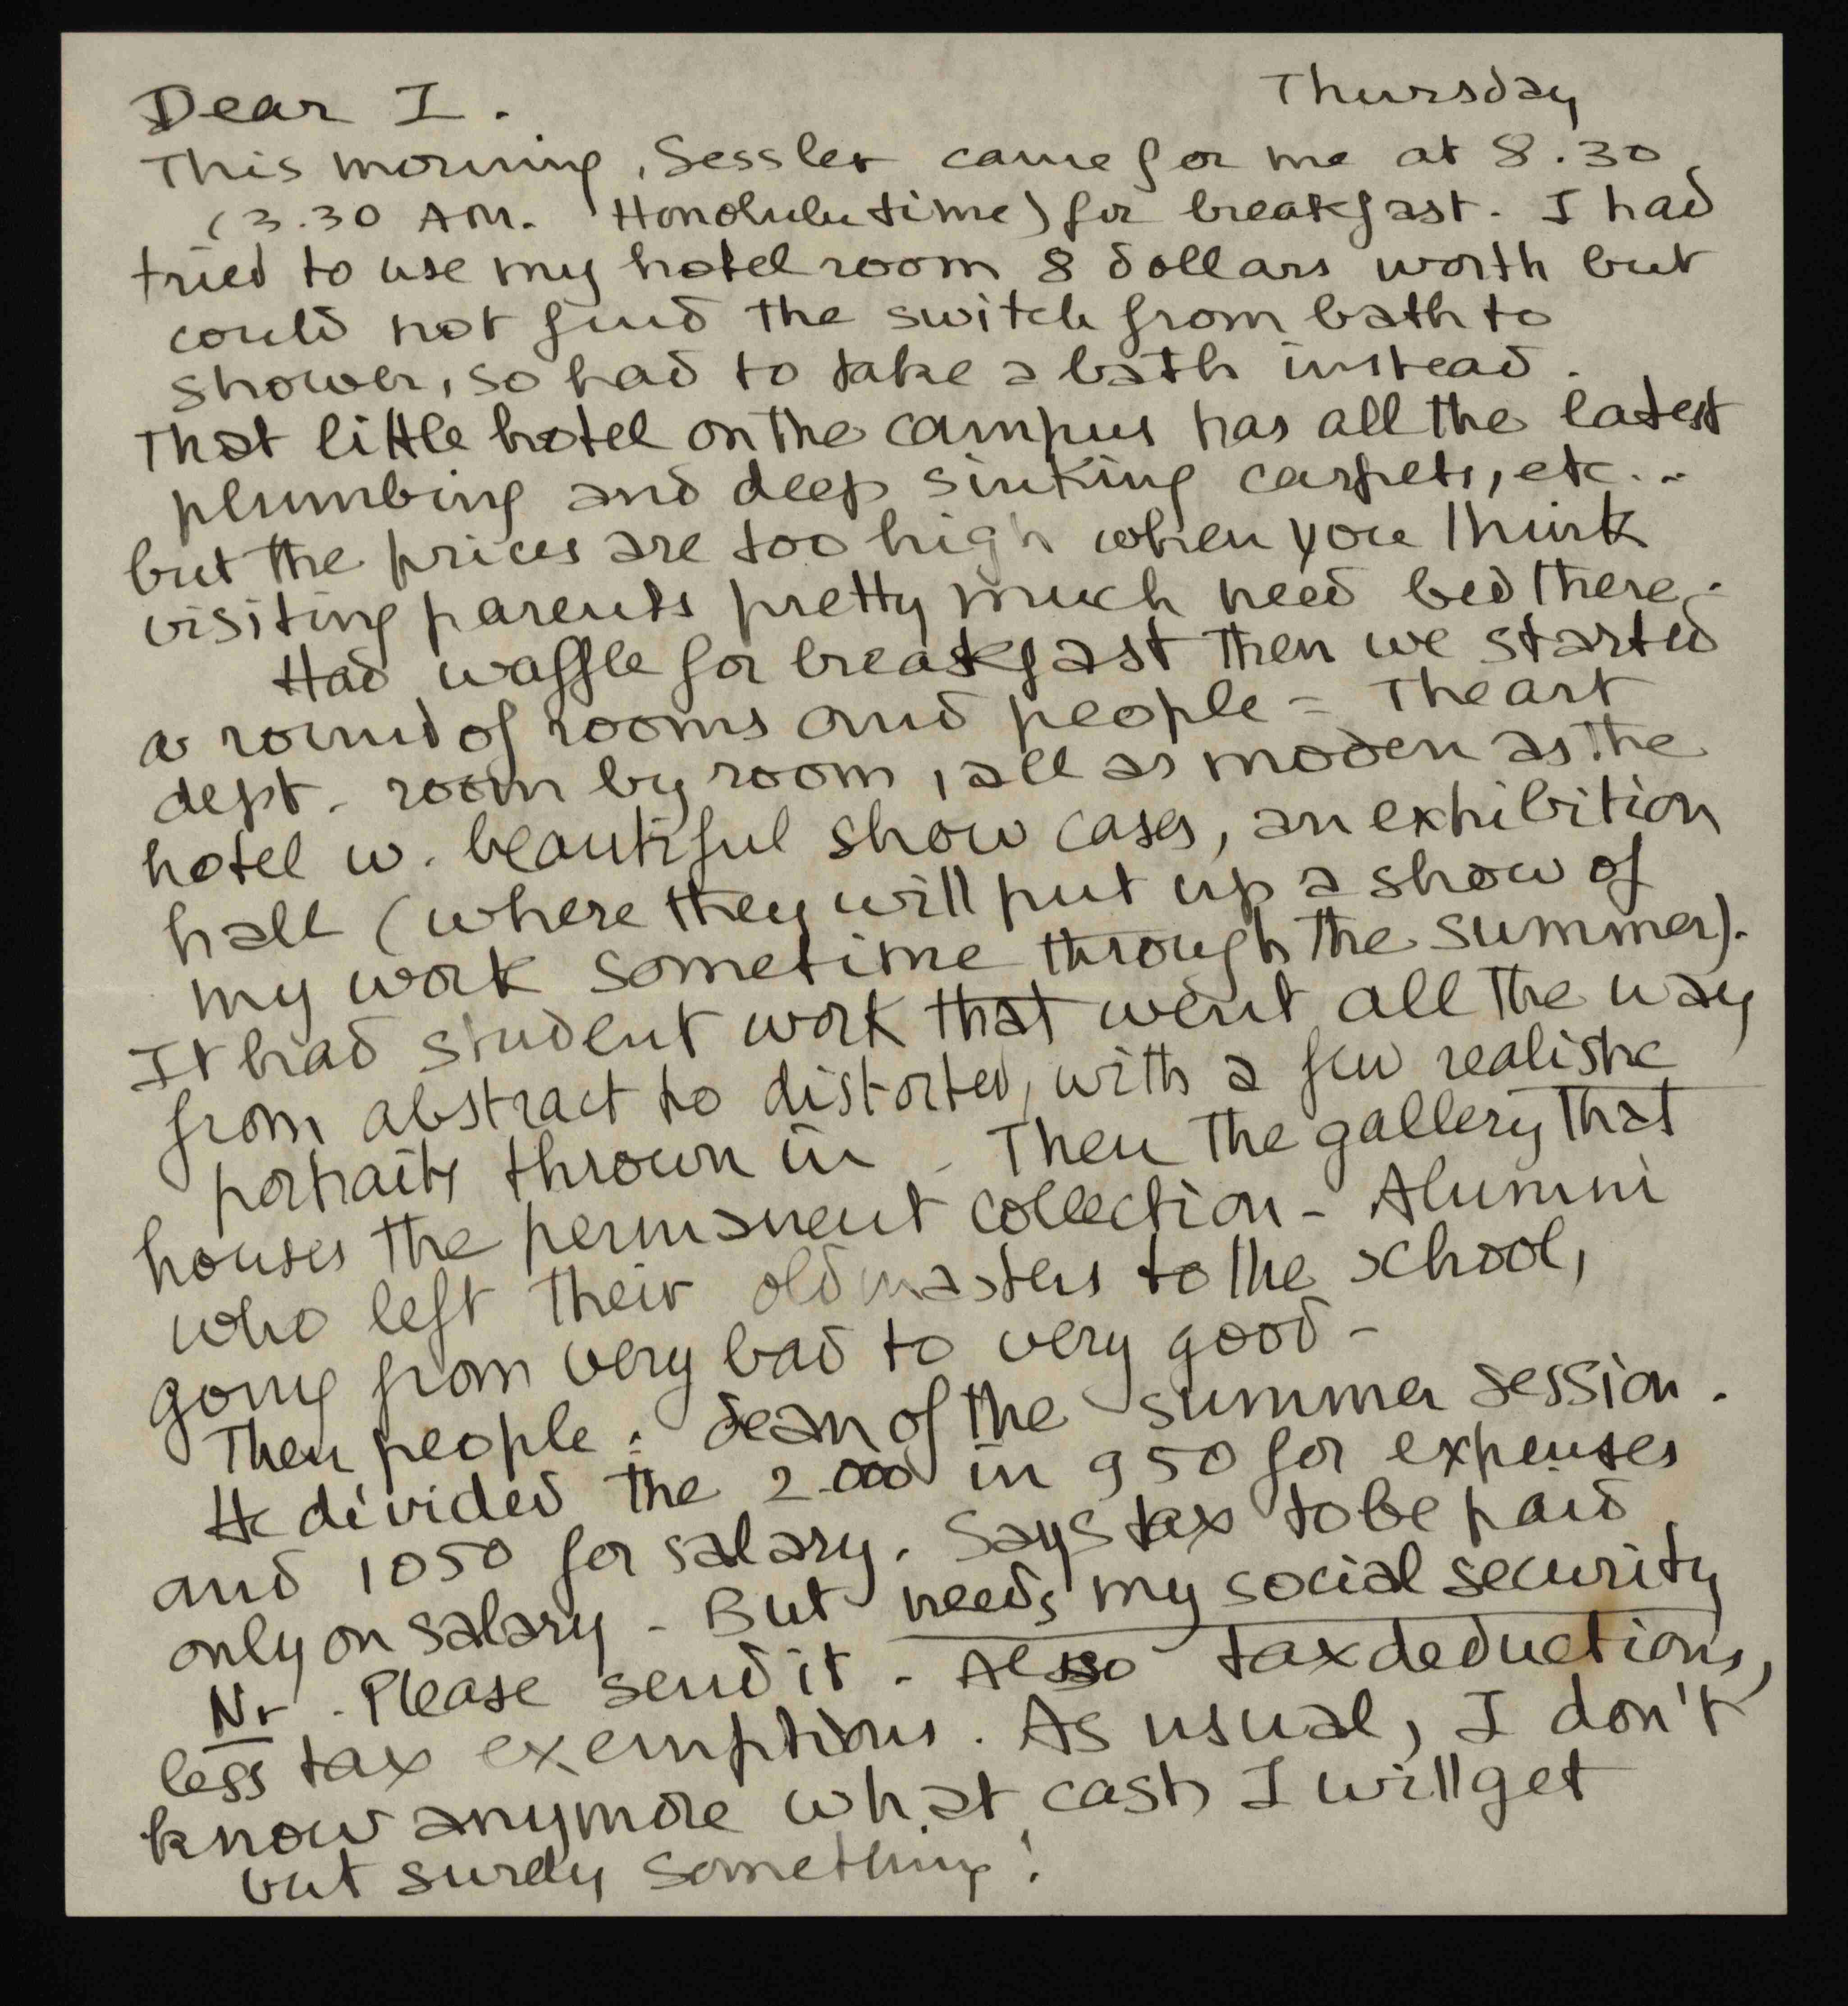 Thursday
Dear I.
This morning, Sessler came for me at 8.30
(3.30 AM. Honolulu time) for breakfast. I had
tried to use my hotel room 8 dollars worth but
could not find the switch from bath to
shower, so had to take a bath instead.
That little hotel on the campus has all the latest
plumbing and deep sinking carpets, etc...
but the prices are too high when you think
visiting parents pretty much need bed there.
Had waffle for breakfast then we started
a round of rooms and people - The art
dept. room by room, all as modern as the
hotel w. beautiful show cases, an exhibition
hall (where they will put up a show of
my work sometime through the summer).
It had student work that went all the way
from abstract to distorted, with a few realistic
portraits thrown in - Then the gallery that
houses the permanent collection - Alumni
who left their old masters to the school,
going from very bad to very good -
Then people: dean of the summer session.
He divided the 2.000 in 950 for expenses
and 1050 for salary. Says tax to be paid
only on salary - But needs my social security
Nr. Please send it - Also tax deductions,
less tax exemptions. As usual, I don't
know anymore what cash I will get
but surely something!